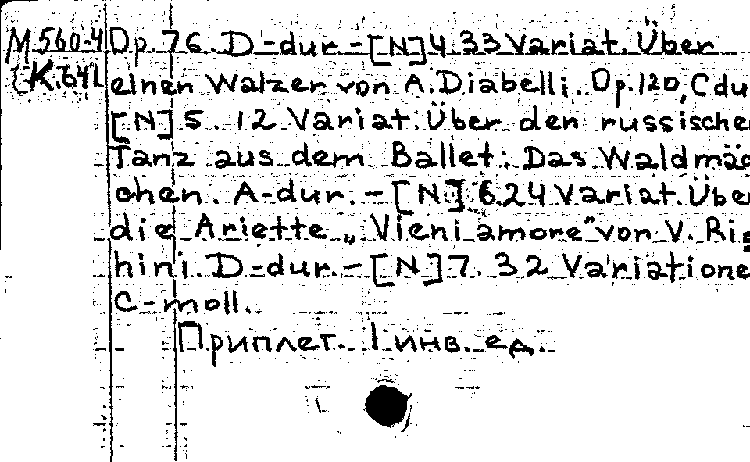 М 560-4 Op. 76. D-dur.-[N]4.33 Variat. Über
К.641 einen Walzer von A.Diabelli. Op.120, C du
[N] 5. 12 Variat. Über den russische
Tanz aus dem Ballet: Das Waldmäd
chen. A-dur.-[N] 6.24 Variat. Übe
die Ariette „Vieni amore" von V. Rig
hini. D-dur.-[N]7. 32 Variatione
C-moll.
Приплет. 1 инв. ед.